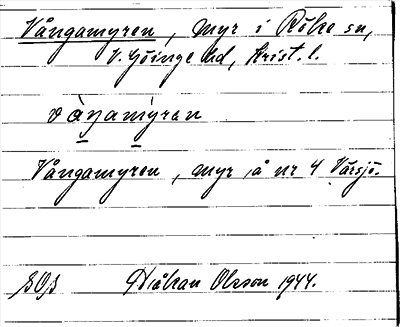 Vångamyren, myr i Röke sn,
V. Göinge hd, Krist. l.
våŋamyran
Vångamyren, myr å nr 4 Värsjö.
Håkan Olsson 1944.